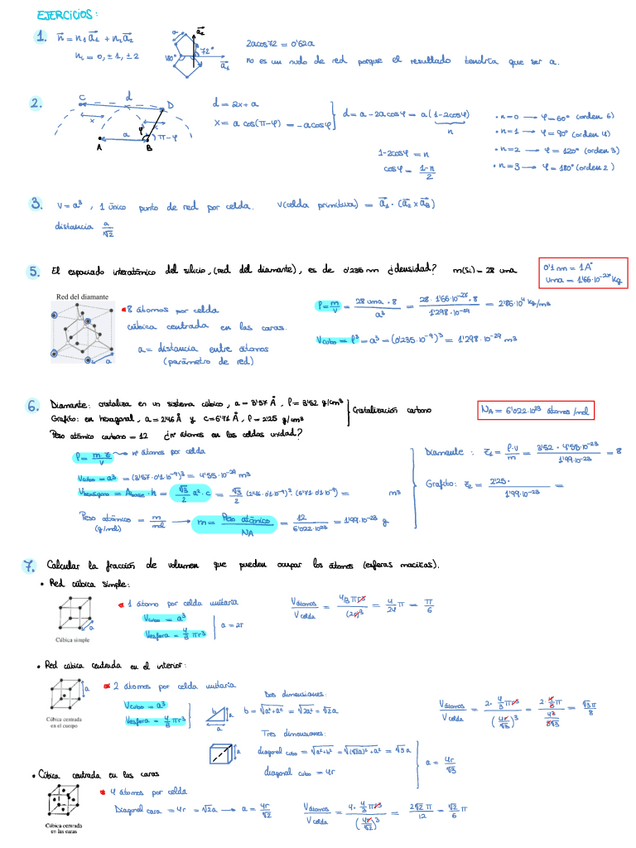 EJERCICIOS:
1. n⃗ = n₁a⃗₁ + n₂a⃗₂
nᵢ = 0, ±1, ±2
a⃗₂
72°
a⃗₁
2acos72 = 0'62a
no es un nudo de red porque el resultado tendría que ser a.
2.
C d D
x x
a
A B
π-φ
d = 2x+a
x = a cos(π-φ) = -acosφ
d = a-2acosφ = a(1-2cosφ)
n
1-2cosφ = n
cosφ = (1-n)/2
• n=0 → φ=60° (orden 6)
• n=1 → φ=90° (orden 4)
• n=2 → φ=120° (orden 3)
• n=3 → φ=180° (orden 2)
3. V=a³, 1 único punto de red por celda. V(celda primitiva) =
distancia a/√2
5. El espaciado interatómico del silicio, (red del diamante), es de 0'235 nm ¿densidad? m(Si) = 28 uma
0'1 nm = 1Å
uma = 1'66·10⁻²⁷ kg
Red del diamante
a
8 átomos por celda
cúbica centrada en las caras.
a = distancia entre átomos
(parámetro de red)
ρ = m/V = 28 uma · 8 / a³ = 28 · 1'66·10⁻²⁷ · 8 / 1'298·10⁻²⁹ =
V = a³ = (0'235·10⁻⁹)³ = 1'298·10⁻²⁹ m³
6. Diamante: cristaliza en un sistema cúbico, a = 3'57 Å, ρ = 3'52 g/cm³
Grafito: en hexagonal, a = 2'46 Å y c = 6'71 Å, ρ = 2'25 g/cm³
Cristalización carbono
Peso atómico carbono = 12 ¿nº átomos en las celdas unidad?
N_A = 6'022·10²³ átomos/mol
nº átomos por celda
V cubo = a³ = (3'57·0'1·10⁻⁹)³ = 4'55·10⁻²⁹ m³
V hexágono = A base · h = √3/2 a²·c = √3/2 (2'46·0'1·10⁻⁹)²·(6'71·0'1·10⁻⁹) = m³
Peso atómico = m/mol → m = Peso atómico/NA = 12/6'022·10²³ = 1'99·10⁻²³ g
(g/mol)
Diamante: z₁ = ρ·V/m = 3'52 · 4'55·10⁻²³ / 1'99·10⁻²³ = 8
Grafito: z₂ = 2'25· / 1'99·10⁻²³ =
7. Calcular la fracción de volumen que pueden ocupar los átomos (esferas macizas).
• Red cúbica simple:
a
Cúbica simple
1 átomo por celda unitaria
V cubo = a³
V esfera = 4/3 πr³
a = 2r
V átomos / V celda = 4/3 πr³ / (2r)³ = 4/24 π = π/6
• Red cúbica centrada en el interior:
a
Cúbica centrada
en el cuerpo
2 átomos por celda unitaria
V cubo = a³
V esfera = 4/3 πr³
Dos dimensiones:
b = √(a²+a²) = √2a² = √2a
Tres dimensiones:
diagonal cubo = √(a²+b²) = √((√2a)²+a²) = √3a
diagonal cubo = 4r
a = 4r/√3
V átomos / V celda = 2 · 4/3 πr³ / (4r/√3)³ = = √3π/8
• Cúbica centrada en las caras
Cúbica centrada
en las caras
4 átomos por celda
Diagonal cara = 4r = √2a → a = 4r/√2
V átomos / V celda = 4 · 4/3 πr³ / (4r/√2)³ = 2√2π/12 = √2π/6